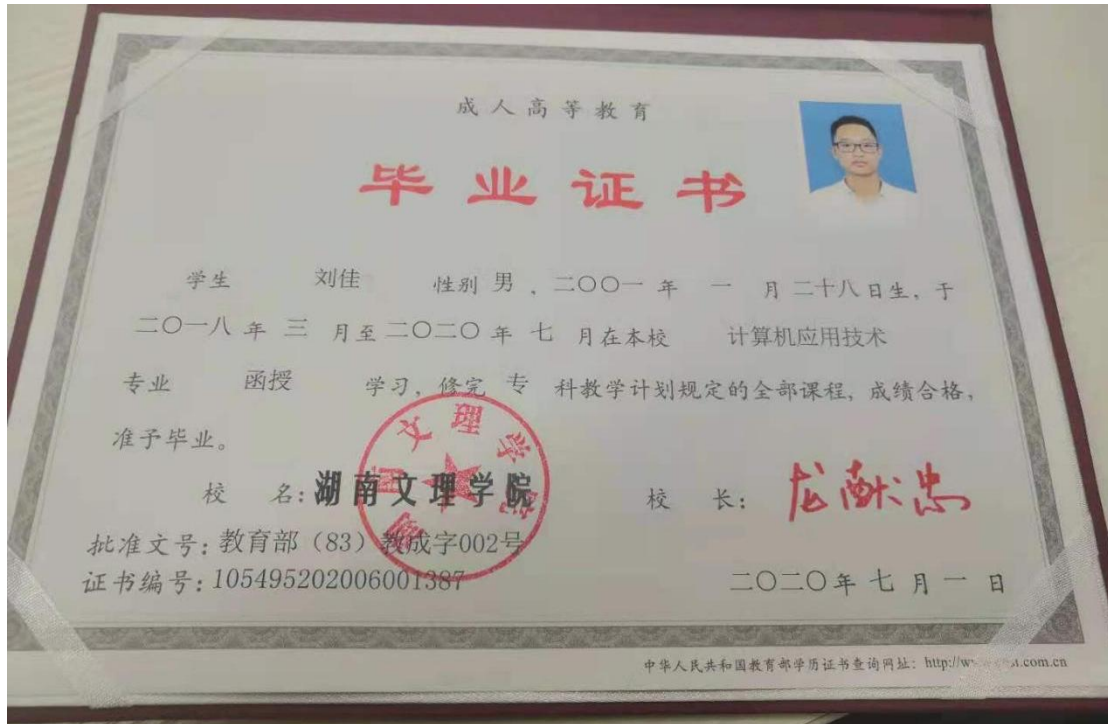 成人高等教育
毕业证书
学生 刘佳 性别 男 、二〇〇一 年 一 月 二十八日生，于
二〇一八 年 三 月至 二〇二〇 年 七 月在本校 计算机应用技术
专业 函授 学习，修完 专 科教学计划规定的全部课程，成绩合格，
准予毕业。
湖南文理学院
校 名：湖南文理学院 校 长：龙献忠
批准文号：教育部（83）教成字002号
证书编号：105495202006001387 二〇二〇年 七 月 一 日
中华人民共和国教育部学历证书查询网址：http://www
.com.cn